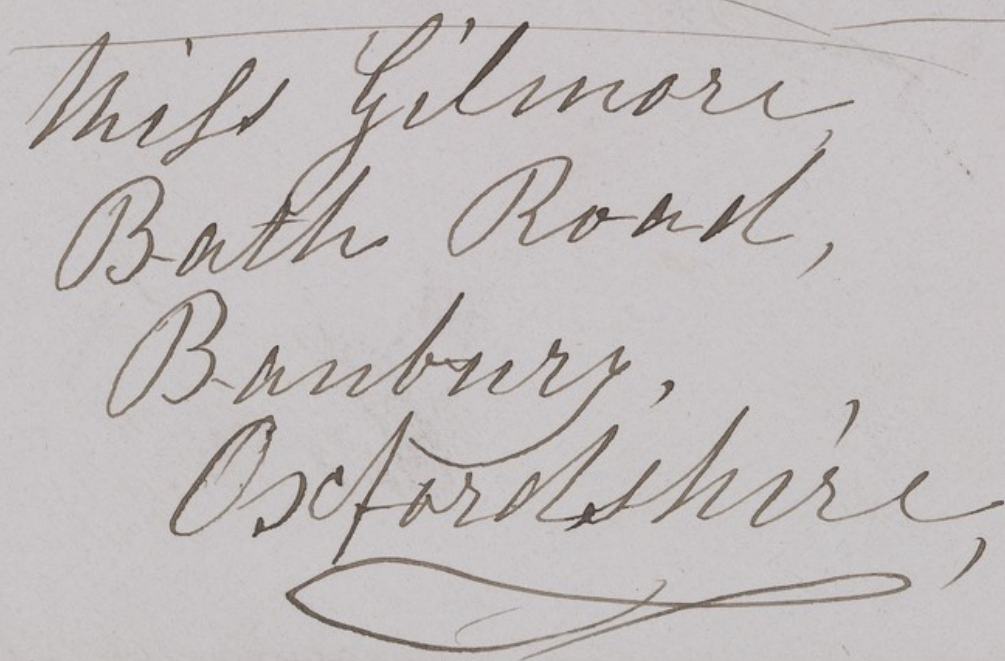 Miss Gilmore,
Bath Road,
Banbury,
Oxfordshire,